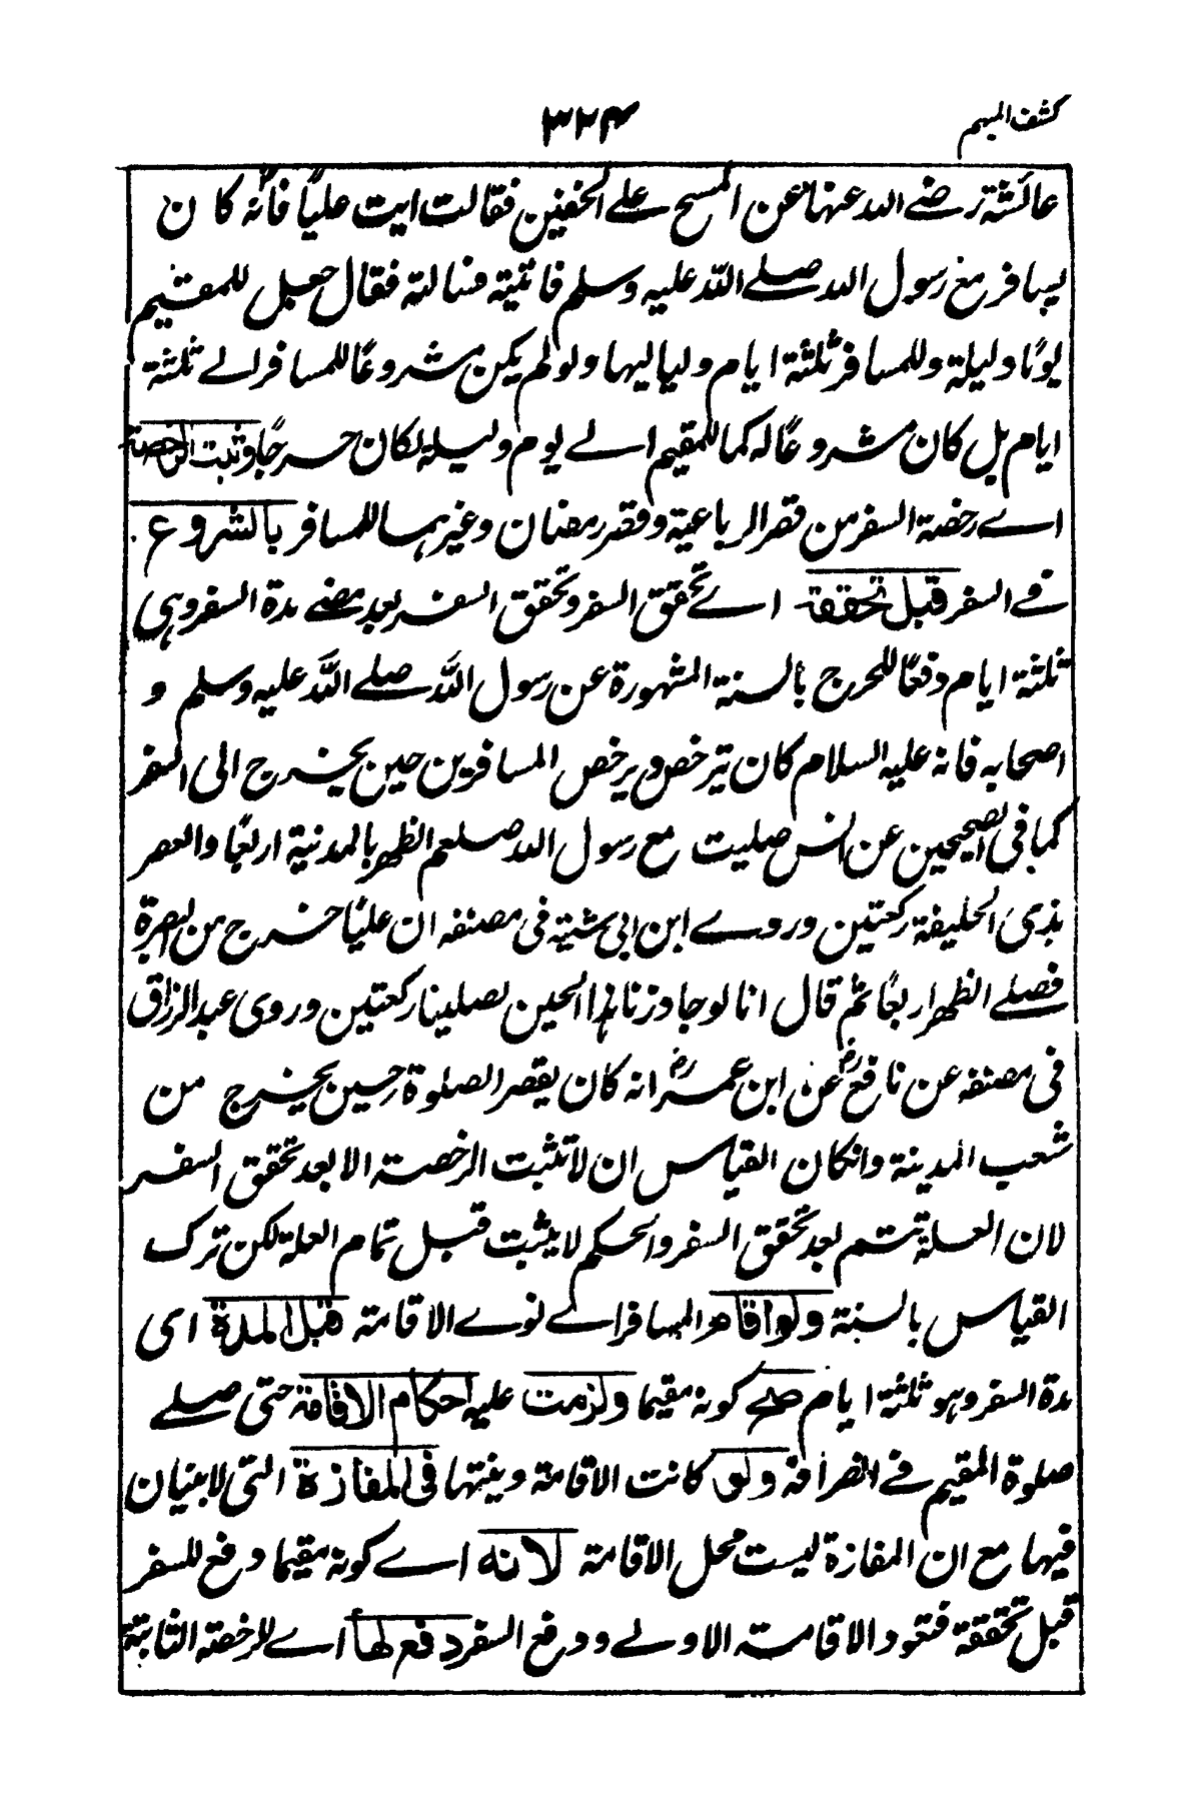 كشف المبهم
٣٢٤
عائشة رضے الله عنها عن المسح علے الخفين فقالت ايت عليًا فانّه كان
يسافر مع رسول الله صلے الله عليه وسلم فاتيته فسالته فقال جعل للمقيم
يومًا وليلة وللمسافر ثلثة ايام ولياليها ولو لم يكن مشروعًا للمسافر الے ثلثة
ايام بل كان مشروعًا له كما للمقيم الے يوم وليلة لكان حرجًا وتثبت الرخصة
اے رخصة السفر من قصر الرباعية وفطر رمضان وغيرهما للمسافر بالشروع
فے السفر قبل تحققه اے تحقق السفر وتحقق السفر بعد مضے مدة السفر وهى
ثلثة ايام دفعًا للحرج بالسنة المشهورة عن رسول الله صلے الله عليه وسلم و
اصحابه فانه عليه السلام كان يترخص ويرخص المسافرين حين يخرج الى السفر
كما فى الصحيحين عن انس صليت مع رسول الله صلعم الظهر بالمدينة اربعًا والعصر
بذى الحليفة ركعتين وروے ابن ابى شيبة فى مصنفه ان عليًا خرج من البصرة
فصلے الظهر اربعًا ثم قال انا لو جاوزنا هذا الحين لصلينا ركعتين وروى عبد الرزاق
فى مصنفه عن نافع رض عن ابن عمر رض انه كان يقصر الصلوة حين يخرج من
شعب المدينة وانكان القياس ان لا تثبت الرخصة الا بعد تحقق السفر
لان العلة تتم بعد تحقق السفر والحكم لا يثبت قبل تمام العلة لكن ترك
القياس بالسنة ولو اقام المسافر اے نوے الاقامة قبل المدة اى
مدة السفر وهو ثلثة ايام صح كونه مقيما ولزمت عليه احكام الاقامة حتى صلے
صلوة المقيم فے انصرافه ولو كانت الاقامة ونيتها فى المفازة التى لا بنيان
فيها مع ان المفازة ليست محل الاقامة لانه اے كونه مقيما دفع للسفر
قبل تحققه فتعود الاقامة الاولے ودفع السفر دفع لها اے للرخصة الثابتة